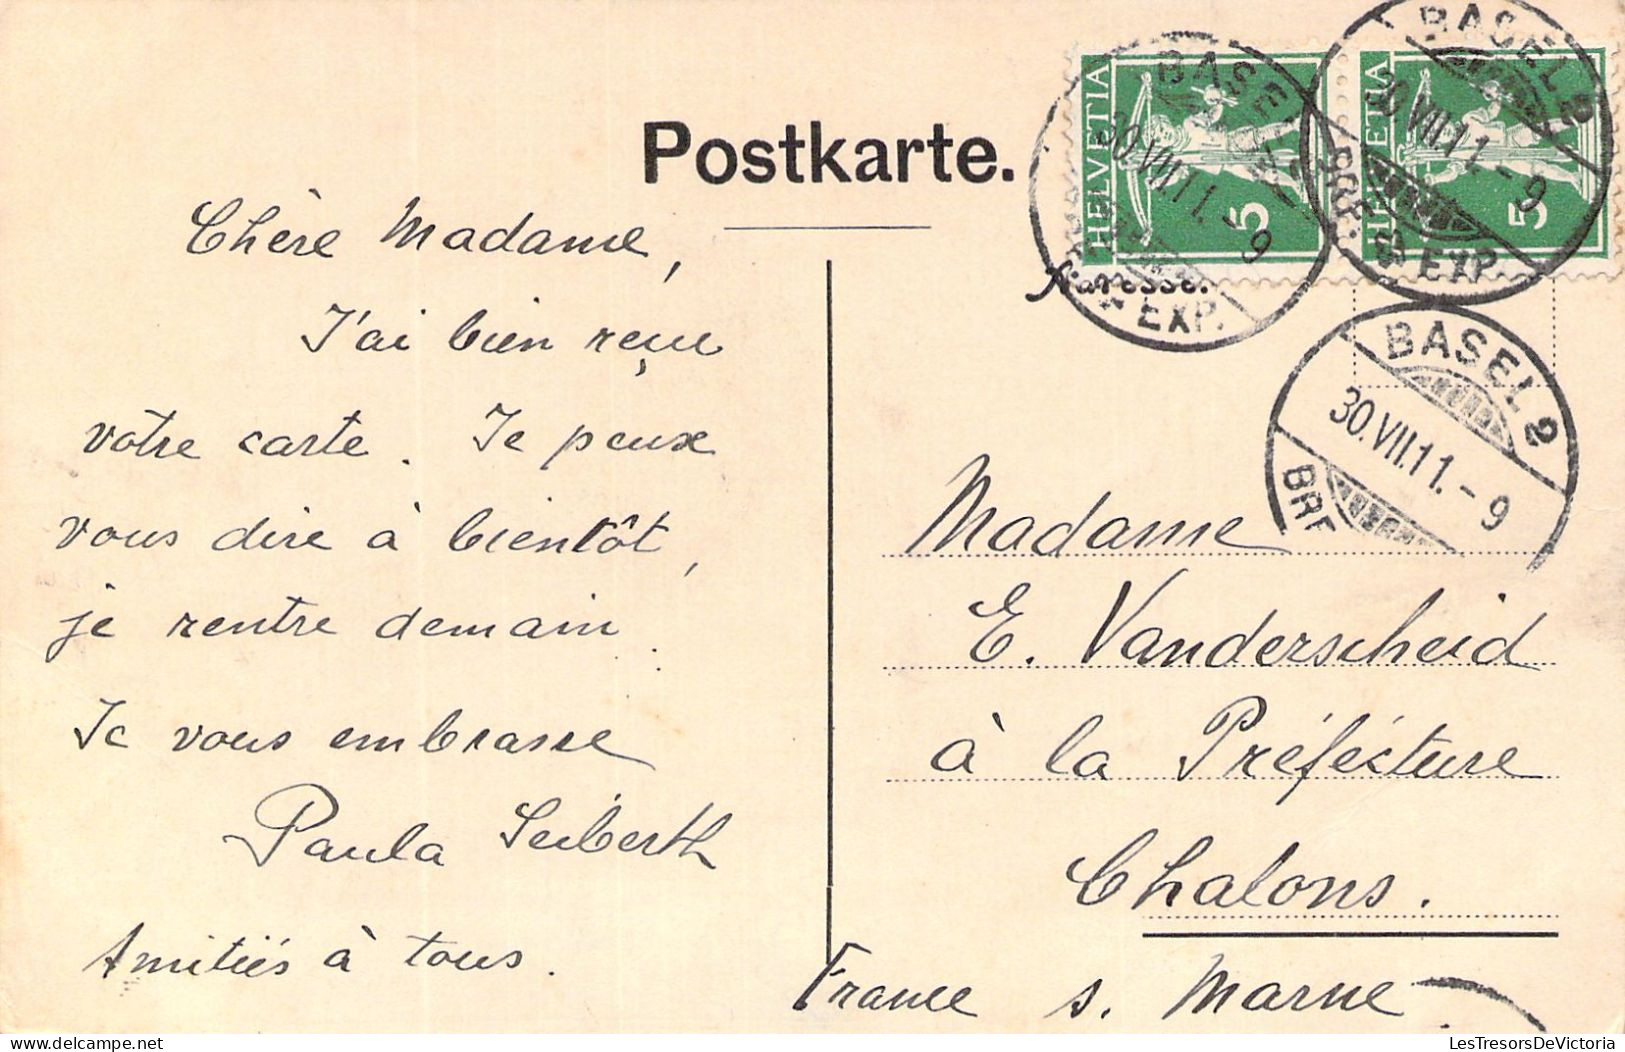 Postkarte.
Adresse.
HELVETIA 5
HELVETIA 5
BASEL 2
30.VII.11.-9
EXP.
BASEL 2
30.VII.11.-9
BRF. EXP.
BASEL 2
30.VII.11.-9
BRF
Chère Madame,
J'ai bien reçu
votre carte. Je peux
vous dire à bientôt,
je rentre demain.
Je vous embrasse
Paula Seiberth
Amitiés à tous.
Madame
E. Vanderscheid
à la Préfécture
Chalons.
France s. Marne
LesTresorsDeVictoria